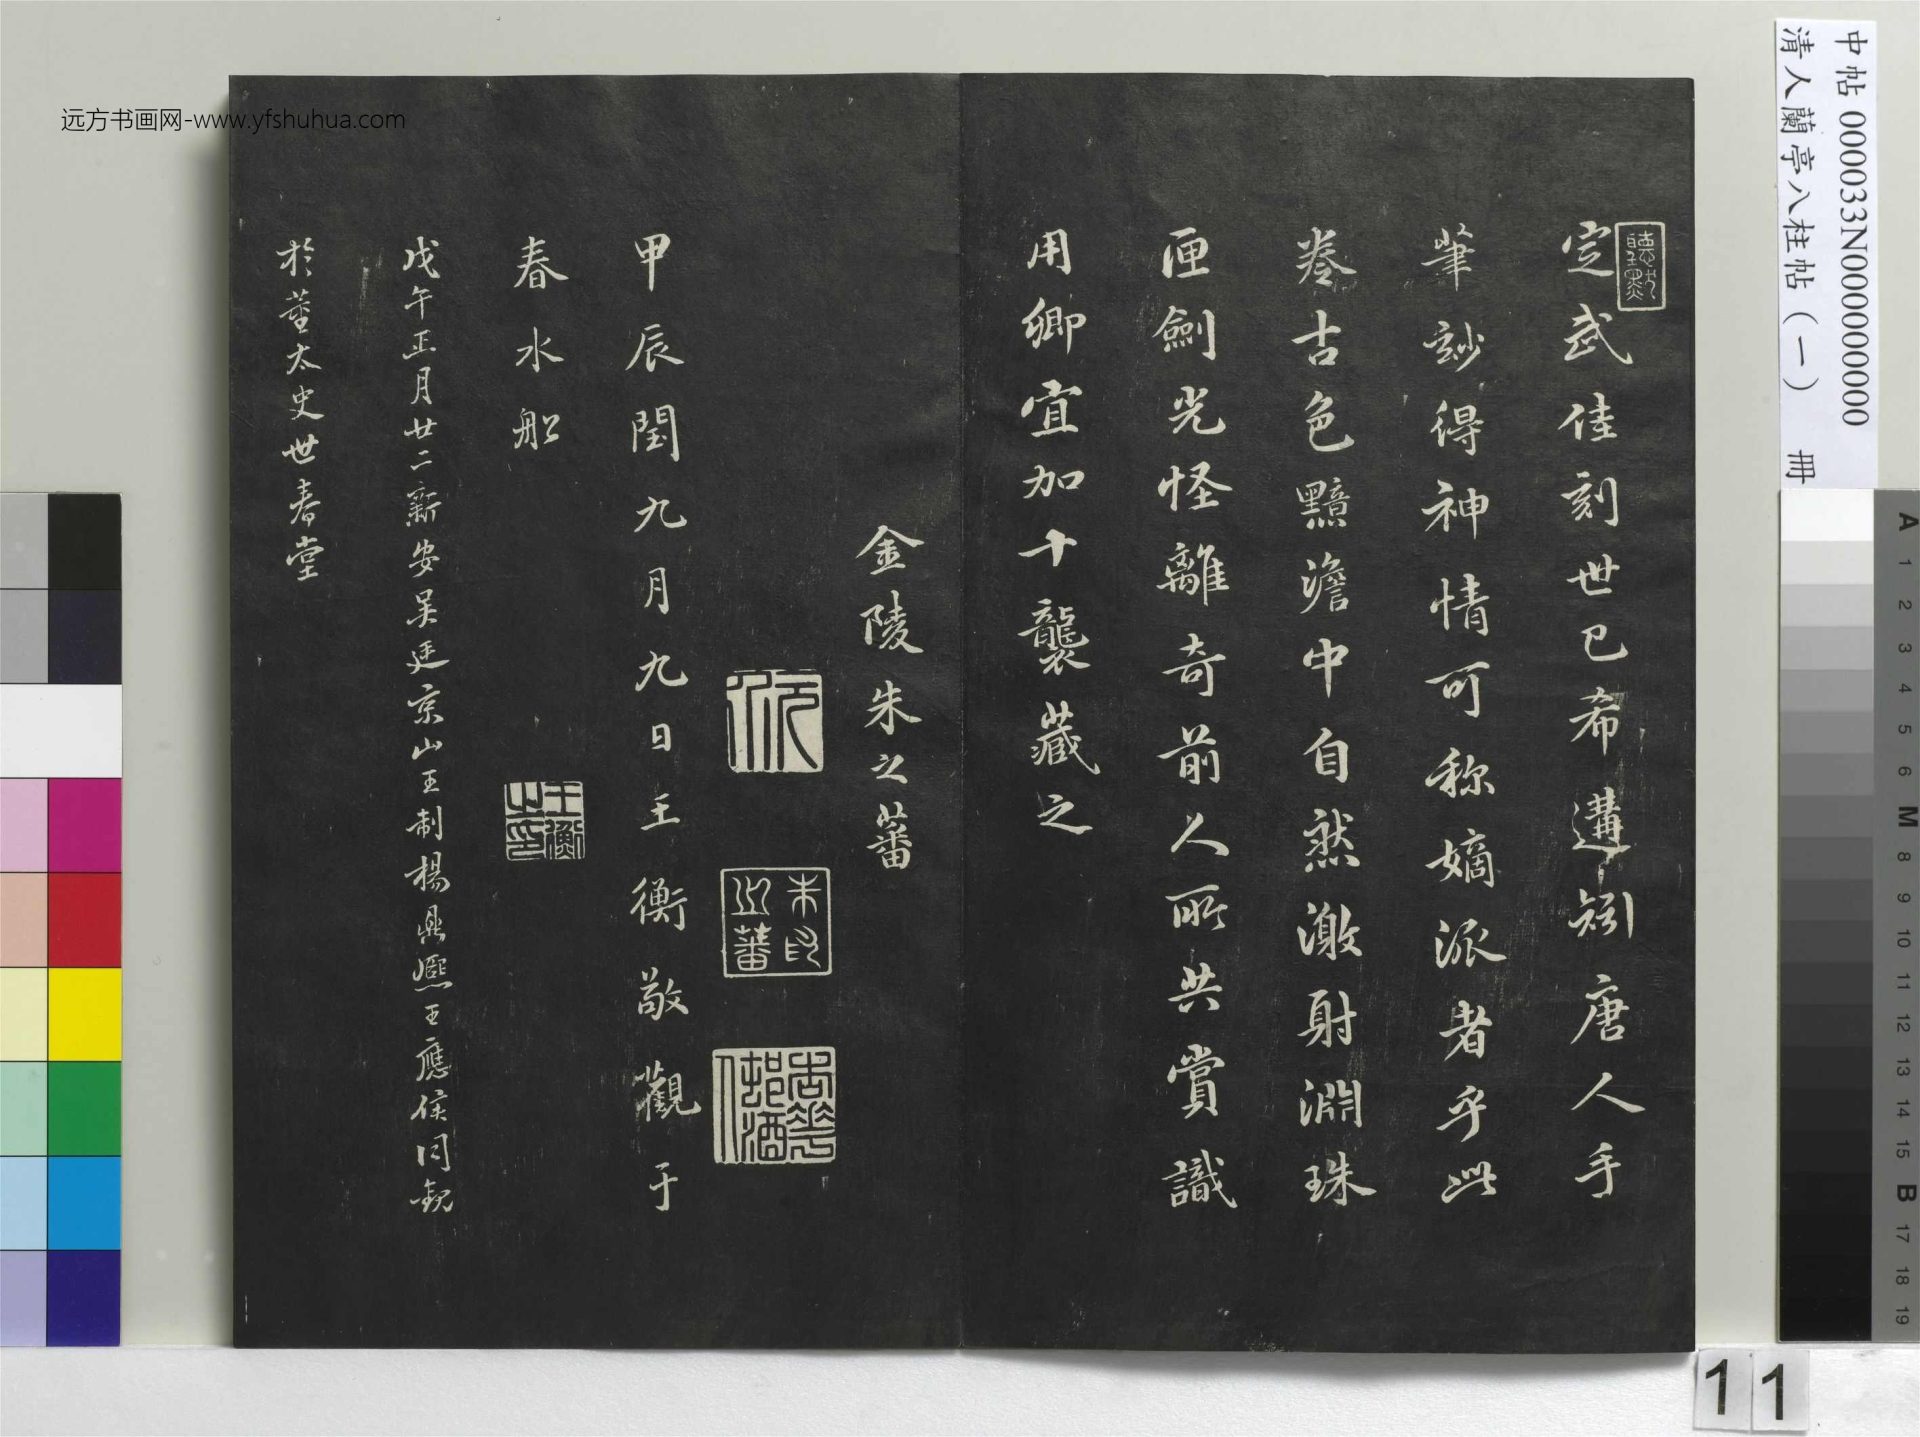 中帖 000033N000000000
清人蘭亭八柱帖（一） 冊
远方书画网-www.yfshuhua.com
聽默
定武佳刻世已希遘矧唐人手
筆玅得神情可称嫡派者乎此
卷古色黯澹中自然激射淵珠
匣劍光怪離奇前人所共賞識
用卿宜加十襲藏之
金陵朱之蕃
朱之蕃印
甲辰閏九月九日王衡敬觀于
春水船
王衡之印
戊午正月廿二新安吴廷京山王制楊鼎熙王應侯同觀
於董太史世春堂
A 1 2 3 4 5 6 M 8 9 10 11 12 13 14 15 B 17 18 19
11